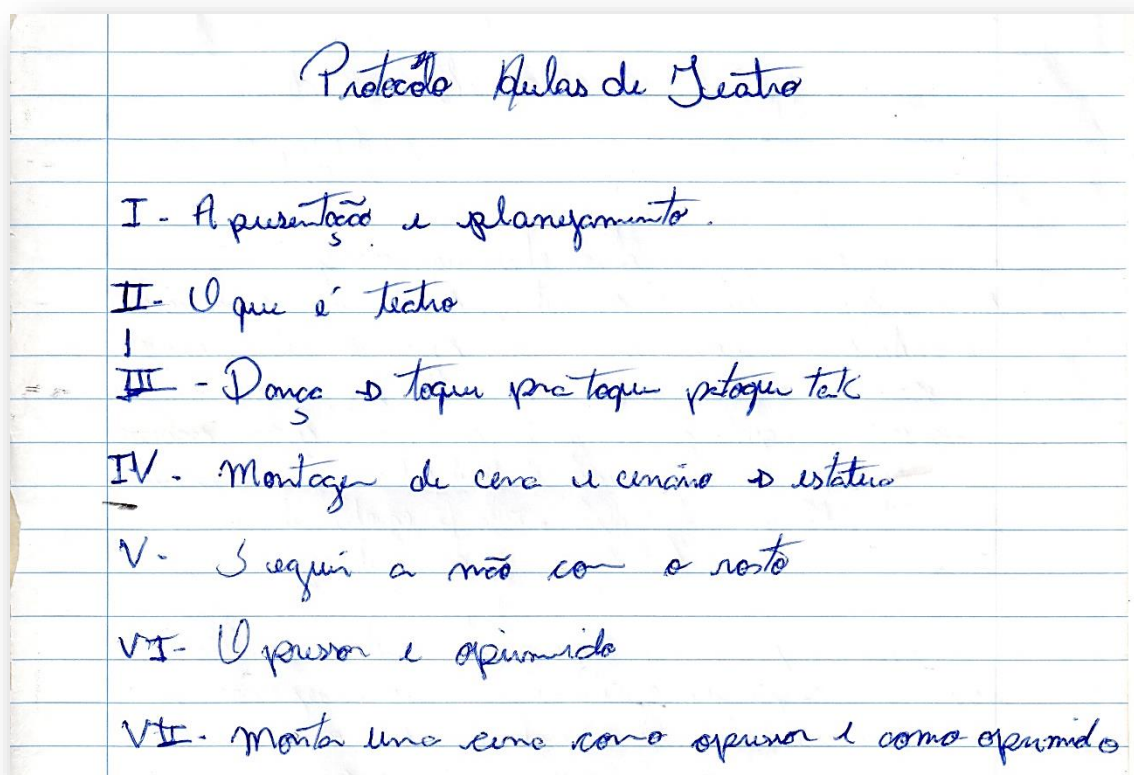 Protocolo Aulas de Teatro
I - Apresentação e planejamento.
II - O que é teatro
III - Dança → toque pra toque patoque tak
IV - Montagem de cena e cenário → estátua
V - Seguir a mão com o rosto
VI - Opressor e oprimido
VII - Monta uma cena como opressor e como oprimido